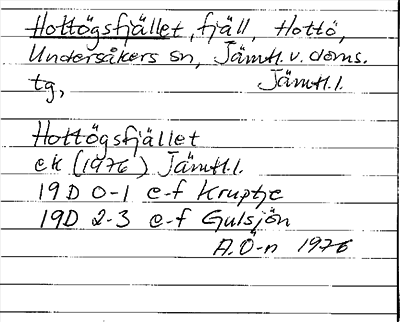 Hottögsfjället, fjäll, Hottö,
Undersåkers sn, Jämtl. v. doms.
tg, Jämtl. l.
Hottögsfjället
ek (1976) Jämtl. l.
19D 0-1 e-f Kruptje
19D 2-3 e-f Gulsjön
A. Ö-n 1976